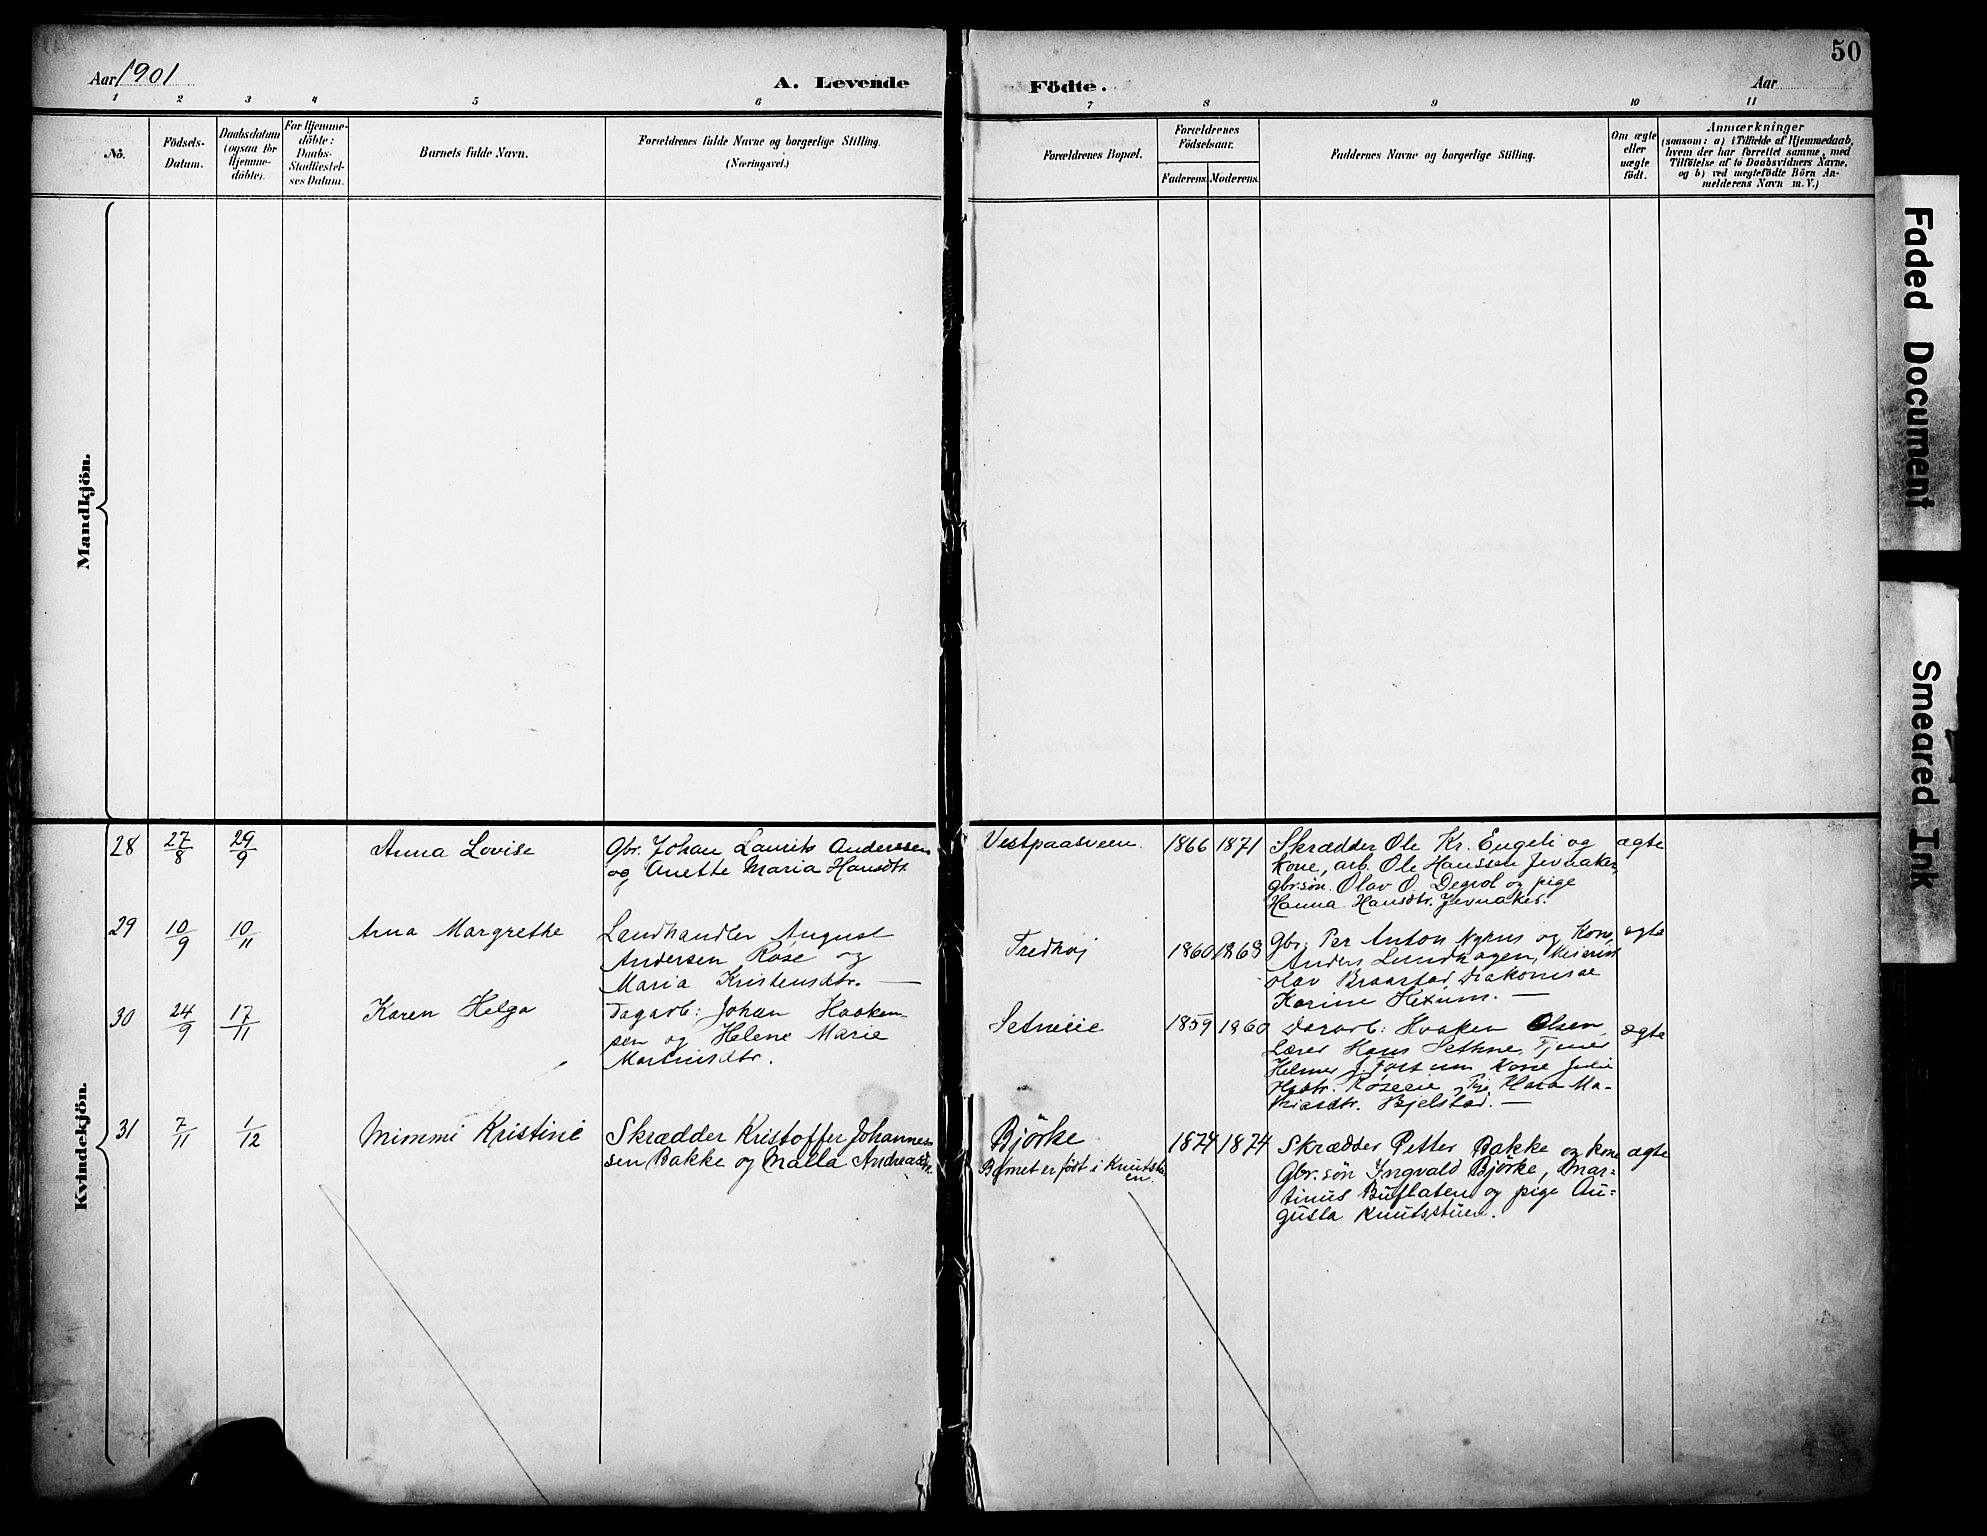 50
Aar 1901
A. Levende
Födte.
Aar
1 2 3 4 5 6 7 8 9 10 11
No.
Födsels-
Datum.
Daabsdatum
(ogsaa for
Hjemme-
döbte).
For Hjemme-
döbte:
Daabs-
Stadfæstel-
ses Datum.
Barnets fulde Navn.
Forældrenes fulde Navne og borgerlige Stilling.
(Næringsvei.)
Forældrenes Bopæl.
Forældrenes
Födselsaar.
Faderens. Moderens.
Faddernes Navne og borgerlige Stilling.
Om ægte
eller
uægte
födt.
Anmærkninger
(saasom: a) i Tilfælde af Hjemmedaab,
hvem der har forrettet samme, med
Tilföielse af to Daabsvidners Navne,
og b) ved uægtefödte Börn An-
melderens Navn m. V.)
Mandkjön.
Kvindekjön.
28
27/8
29/9
Anna Lovise
Gbr. Johan Laurits Andersen
og Anette Maria Hansdtr.
Vestpaasveen.
1866 1871
Skrædder Ole Kr. Engeli og
kone, arb. Ole Hanssen Jevnaker,
gbr.søn. Olav O. Degvol og pige
Hanna Hansdtr. Jevnaker.
ægte
29
10/9
10/11
Anna Margrethe
Landhandler August
Andersen Rose og
Maria Kristensdtr. —
Fredhøj
1860 1868
Gbr: Per Anton Nyhus og Kone,
Anders Lundhagen, Meierist
Olav Braastad, Diakonisse
Karine Hexum. —
ægte
30
24/9
17/11
Karen Helga
Dagarb: Johan Haaken-
sen og Helene Marie
Martinsdtr.
Setneeie
1859 1860
Dagarb: Haaken Olsen
Lærer Hans Sethne, Tjener
Helmer J. Fossum Kone Julie
Hsdtr. Røseeie, Pige Klara Ma-
thiasdtr. Bjelstad. —
ægte
31
7/11
1/12
Mimmi Kristine
Skrædder Kristoffer Johannes-
sen Bakke og Malla Andreasdtr.
Björke
Barnet er født i Knutstu
en.
1874 1874
Skrædder Petter Bakke og kone
Gbr.søn Ingvald Björke, Mar-
tinus Buflaten og pige Au-
gusta Knutsstuen.
ægte
Faded Document
Smeared Ink